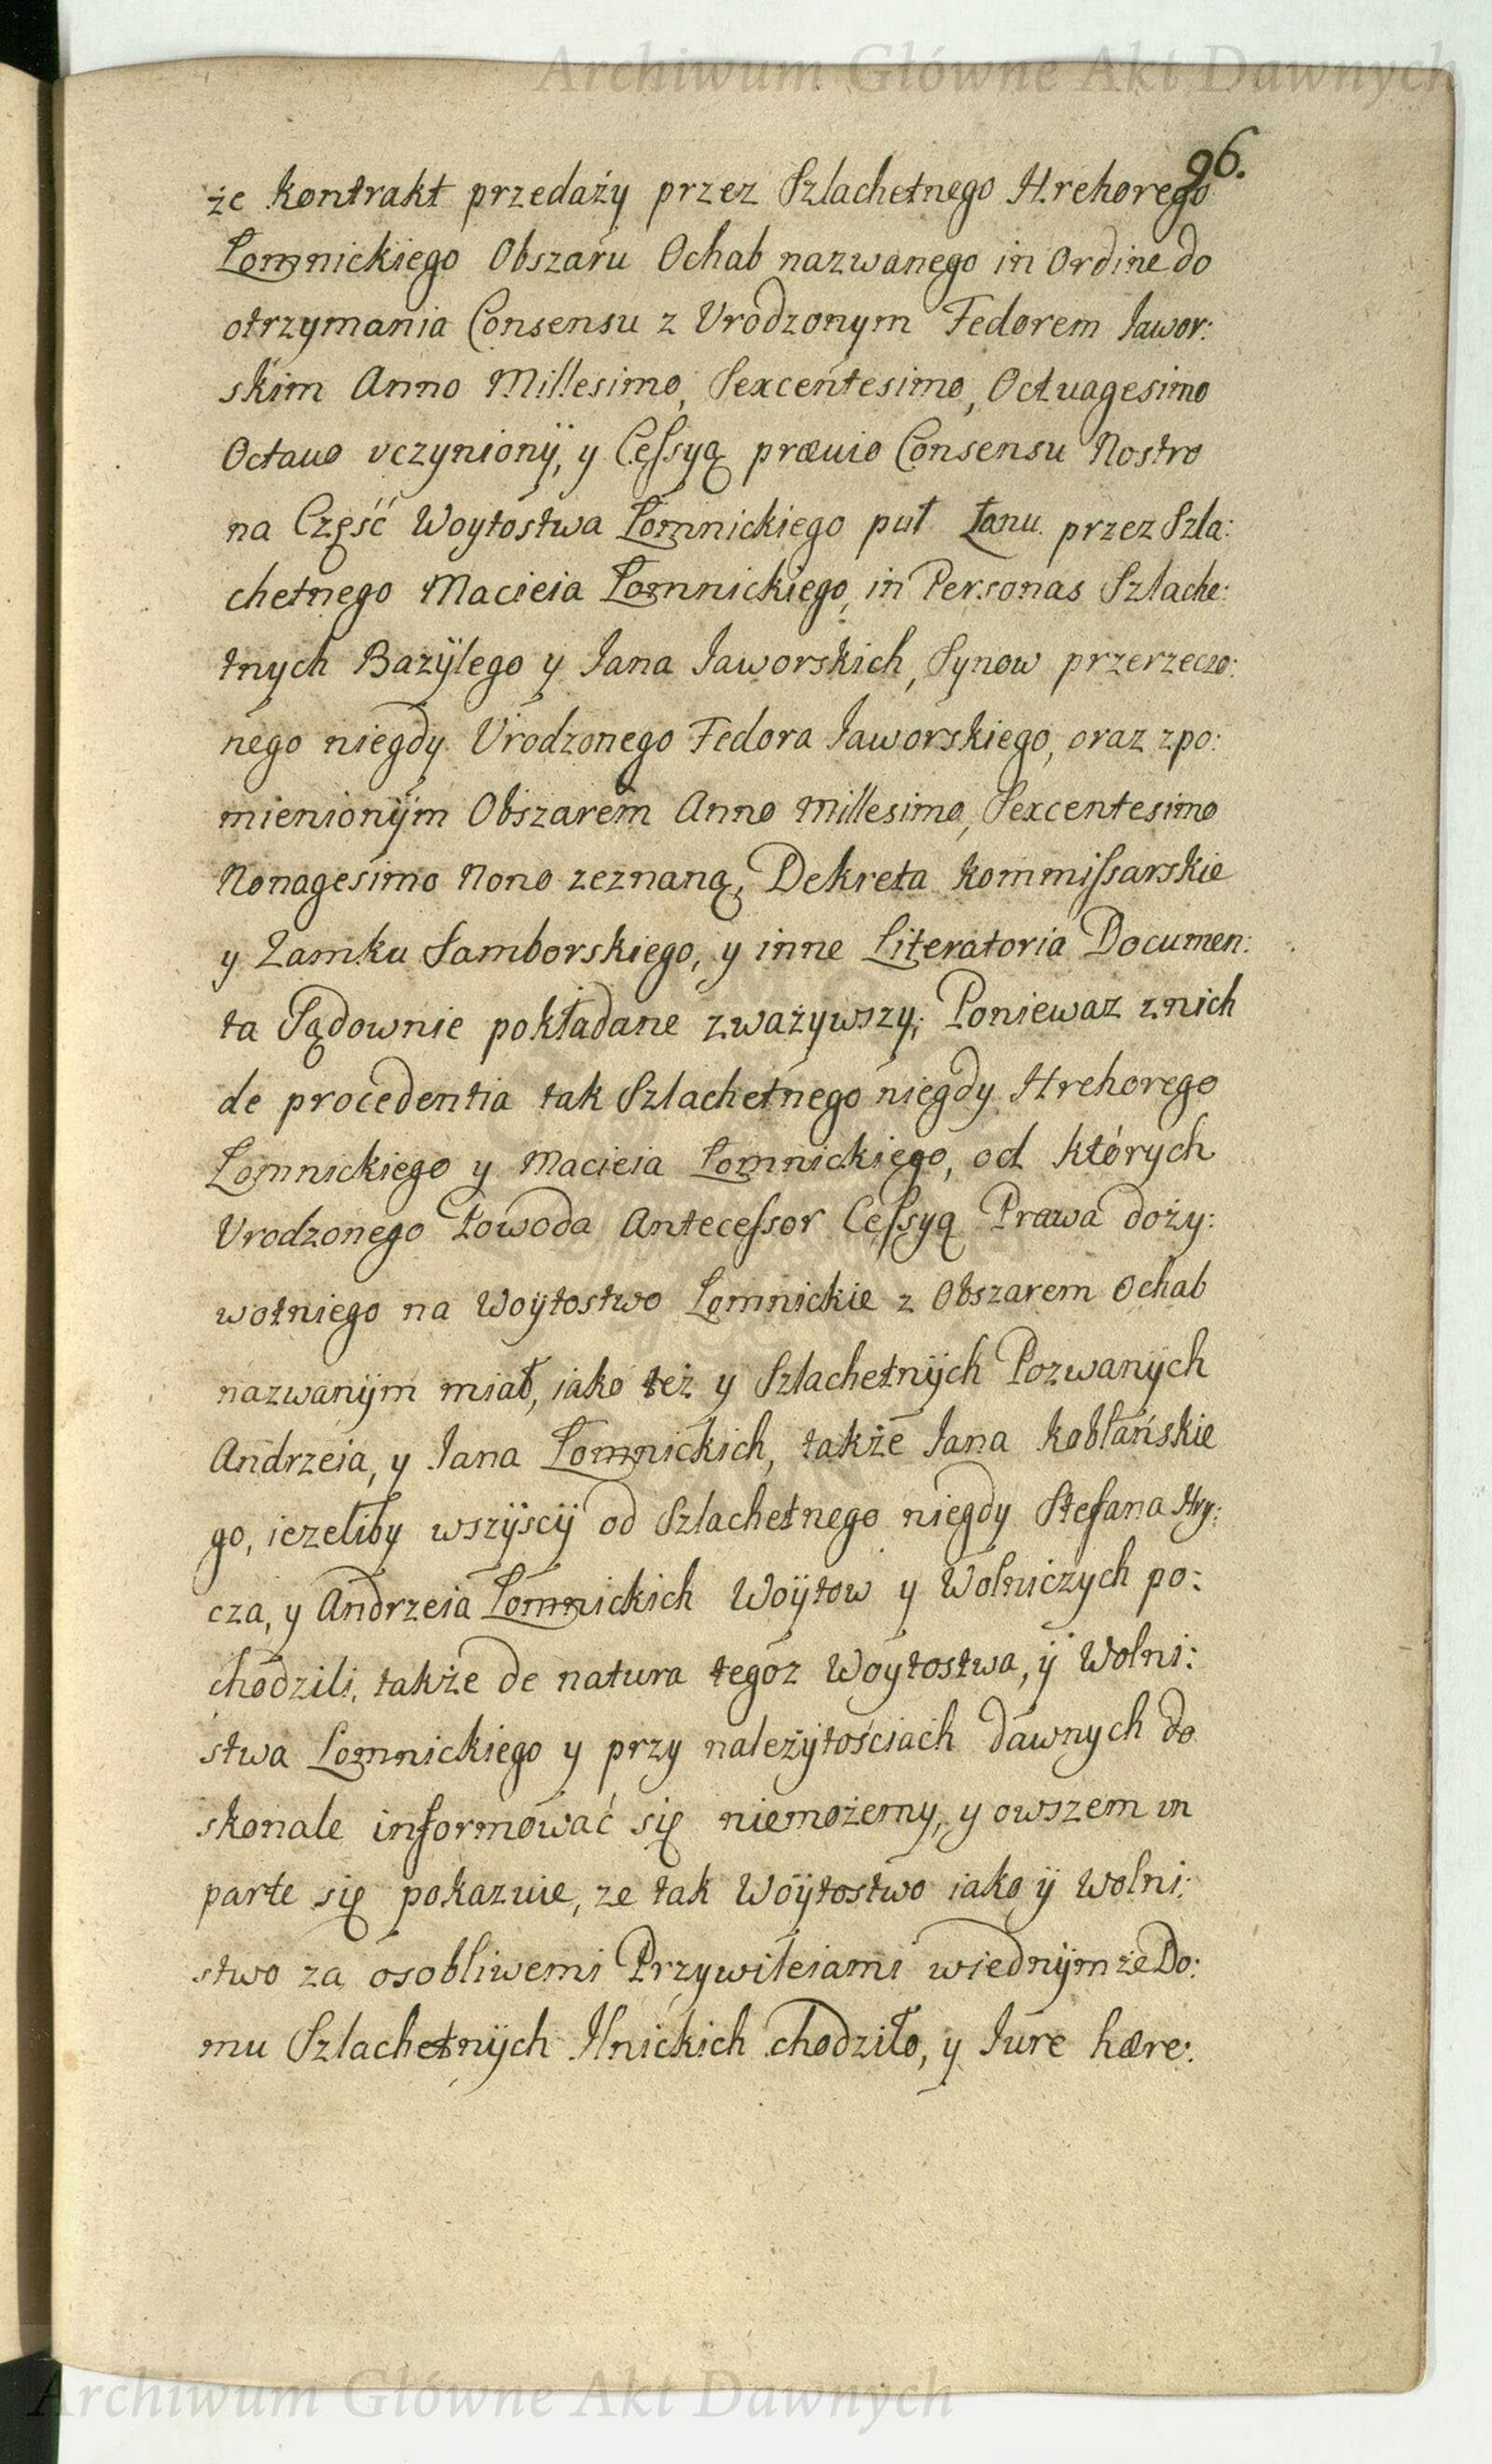 Archiwum Główne Akt Dawnych
96.
że kontrakt przedaży przez Szlachetnego Hrehorego
Łomnickiego Obszaru Ochab nazwanego in Ordine do
otrzymania Consensu z Vrodzonym Fedorem Jawor:
skim Anno Millesimo, Sexcentesimo, Octuagesimo
Octauo vczynionÿ, y Cessyą præuio Consensu Nostro
na Część Woytostwa Łomnickiego puł Łanu przez Szla:
chetnego Macieia Łomnickiego, in Personas Szlache:
tnych Bazÿlego y Jana Jaworskich, Synow przerzeczo:
nego niegdy Vrodzonego Fedora Jaworskiego, oraz zpo:
mienionÿm Obszarem Anno Millesimo, Sexcentesimo
Nonagesimo Nono zeznaną, Dekreta kommissarskie
y Zamku Samborskiego, y inne Literatoria Documen:
ta Sądownie pokładane zważywszy; Poniewaz znich
de procedentia tak Szlachetnego niegdy Hrehorego
Łomnickiego y Macieia Łomnickiego, od których
Vrodzonego Łowoda Antecessor Cessyą Prawa doży:
wotniego na Woÿtostwo Łomnickie z Obszarem Ochab
nazwanÿm miał, iako też y Szlachetnÿch Pozwanÿch
Andrzeia, y Jana Łomnickich, także Jana kobłańskie
go, ieżeliby wszÿscÿ od Szlachetnego niegdy Stefana Hry:
cza, y Andrzeia Łomnickich Woÿtow y Wolniczych po:
chodzili, także de natura tegoż Woytostwa, ÿ Wolni:
stwa Łomnickiego y przy należÿtościach dawnych do
skonale informować się niemożemy, y owszem in
parte się pokazuie, ze tak Woÿtostwo iako ÿ Wolni:
stwo za osobliwemi Przywileiami wiednÿmże Do:
mu Szlachetnÿch Ilnickich chodziło, y Jure hære:
Archiwum Główne Akt Dawnych